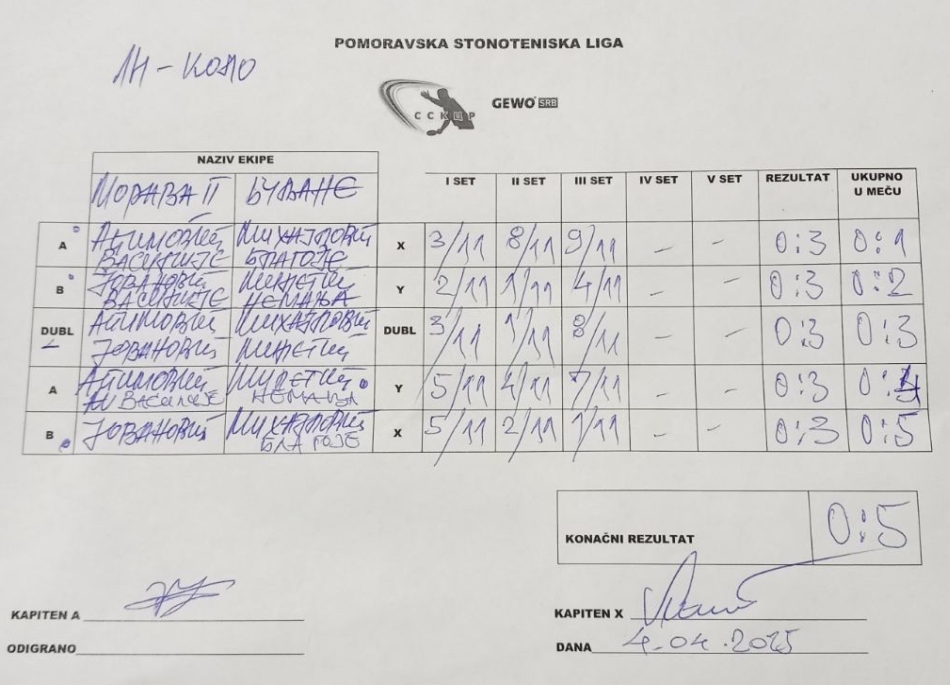 POMORAVSKA STONOTENISKA LIGA
ССКЦР GEWO SRB
NAZIV EKIPE
МОРАВА II
I SET II SET III SET IV SET V SET REZULTAT UKUPNO U MEČU
A АЋИМОВИЋ МИХАЈЛОВИЋ X 3/11 8/11 9/11 – – 0:3 0:1
ВАСИЛИЈЕ БЛАГОЈЕ
B ЈОВАНОВИЋ Y 2/11 1/11 4/11 – – 0:3 0:2
НЕМАЊА
DUBL АЋИМОВИЋ МИХАЈЛОВИЋ DUBL 3/11 1/11 8/11 – – 0:3 0:3
ЈОВАНОВИЋ
A АЋИМОВИЋ Y 5/11 4/11 7/11 – – 0:3 0:4
НЕМАЊА
B ЈОВАНОВИЋ МИХАЈЛОВИЋ X 5/11 2/11 1/11 – – 0:3 0:5
БЛАГОЈЕ
KONAČNI REZULTAT 0:5
KAPITEN A
KAPITEN X
ODIGRANO
DANA 4.04.2025